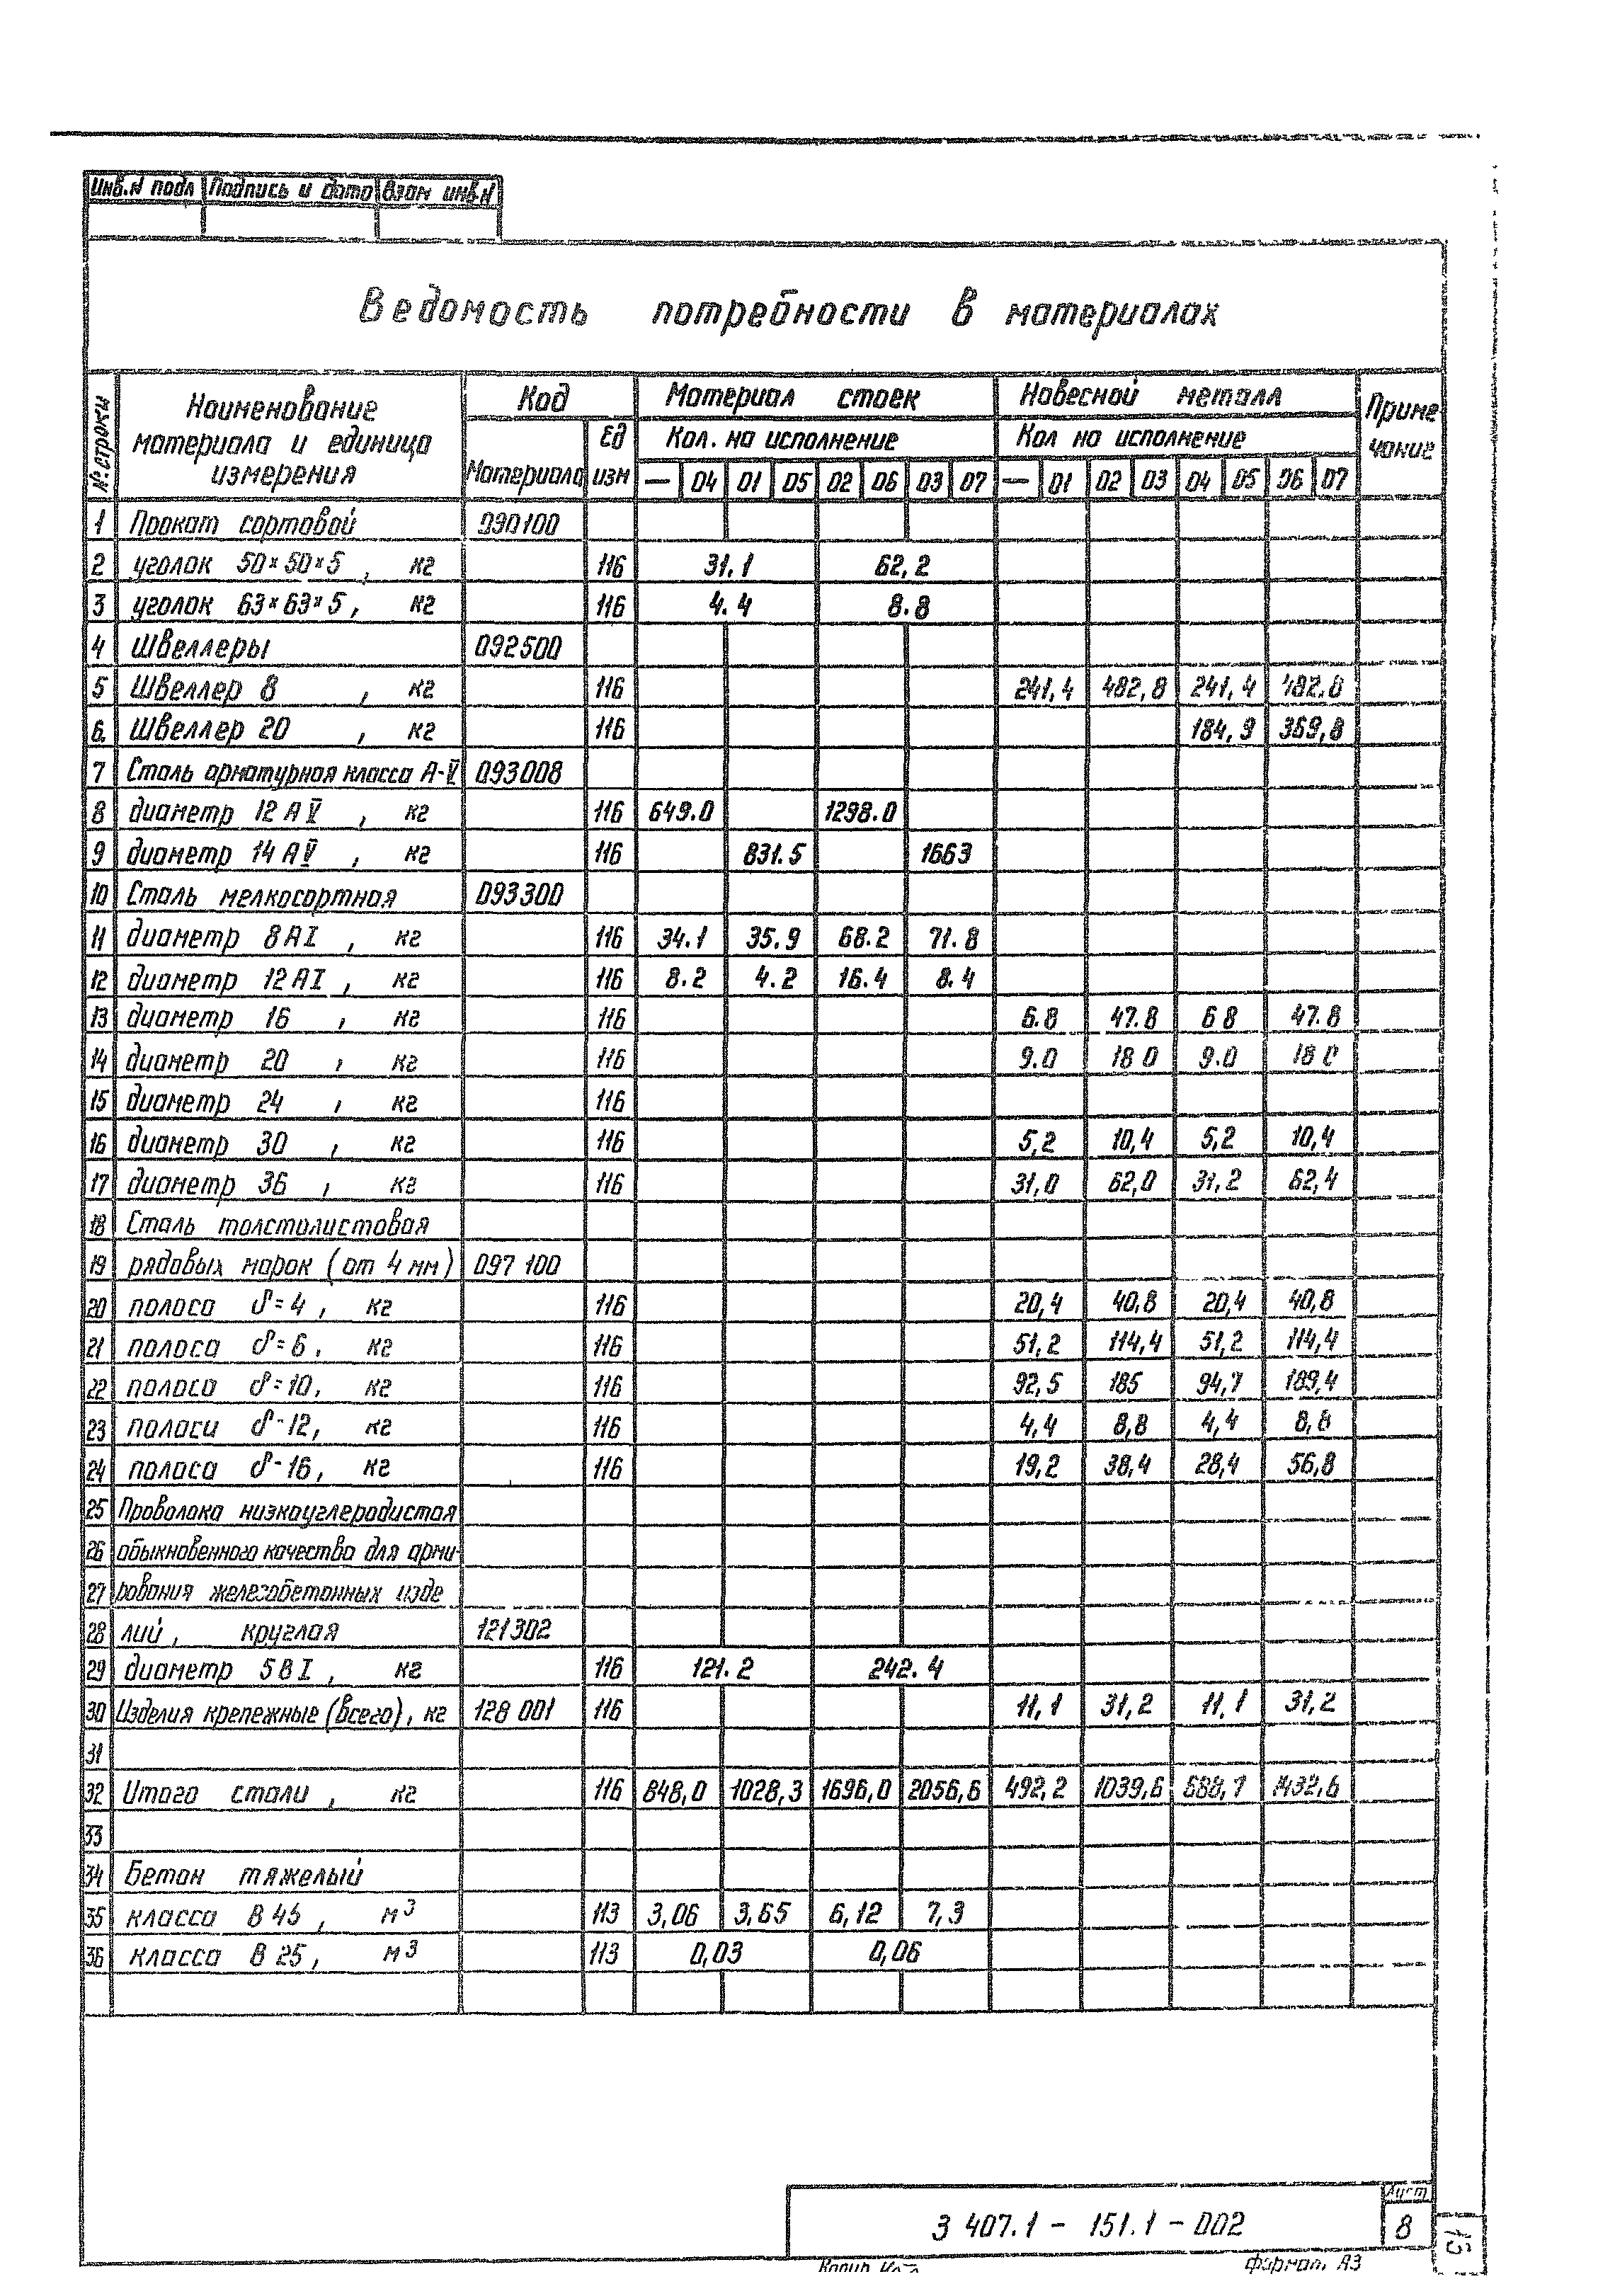 Инв.N подл Подпись и дата Взам инв.N
Ведомость потребности в материалах
№ строки Наименование материала и единица измерения Код Материал стоек Навесной металл Приме чание
Материала Ед изм Кол. на исполнение Кол на исполнение
— 04 01 05 02 06 03 07 — 01 02 03 04 05 06 07
1 Прокат сортовой 090100
2 уголок 50×50×5, кг 116 31.1 62,2
3 уголок 63×63×5, кг 116 4.4 8.8
4 Швеллеры 092500
5 Швеллер 8, кг 116 241,4 482,8 241,4 482.8
6. Швеллер 20, кг 116 184,9 369,8
7 Сталь арматурная класса А-V 093008
8 диаметр 12 А V, кг 116 649.0 1298.0
9 диаметр 14 А V, кг 116 831.5 1663
10 Сталь мелкосортная 093300
11 диаметр 8АI, кг 116 34.1 35.9 68.2 71.8
12 диаметр 12АI, кг 116 8.2 4.2 16.4 8.4
13 диаметр 16, кг 116 6.8 47.8 6 8 47.8
14 диаметр 20, кг 116 9.0 18 0 9.0 18 0
15 диаметр 24, кг 116
16 диаметр 30, кг 116 5,2 10,4 5,2 10,4
17 диаметр 36, кг 116 31,0 62,0 31,2 62,4
18 Сталь толстолистовая
19 рядовых марок (от 4 мм) 097 100
20 полоса δ=4, кг 116 20,4 40,8 20,4 40,8
21 полоса δ=6, кг 116 51,2 114,4 51,2 114,4
22 полоса δ=10, кг 116 92,5 185 94,7 189,4
23 полоса δ-12, кг 116 4,4 8,8 4,4 8,8
24 полоса δ-16, кг 116 19,2 38,4 28,4 56,8
25 Проволока низкоуглеродистая
26 обыкновенного качества для арми-
27 рования железобетонных изде
28 лий, круглая 121302
29 диаметр 5ВI, кг 116 121.2 242.4
30 Изделия крепежные (всего), кг 128 001 116 11,1 31,2 11,1 31,2
31
32 Итого стали, кг 116 848,0 1028,3 1696,0 2056,6 492,2 1039,6 688,7 1432,6
33
34 Бетон тяжелый
35 класса В 45, м³ 113 3,06 3,65 6,12 7,3
36 класса В 25, м³ 113 0,03 0,06
3 407.1 - 151.1 - 002
Лист
8
15
Копир
Формат А3